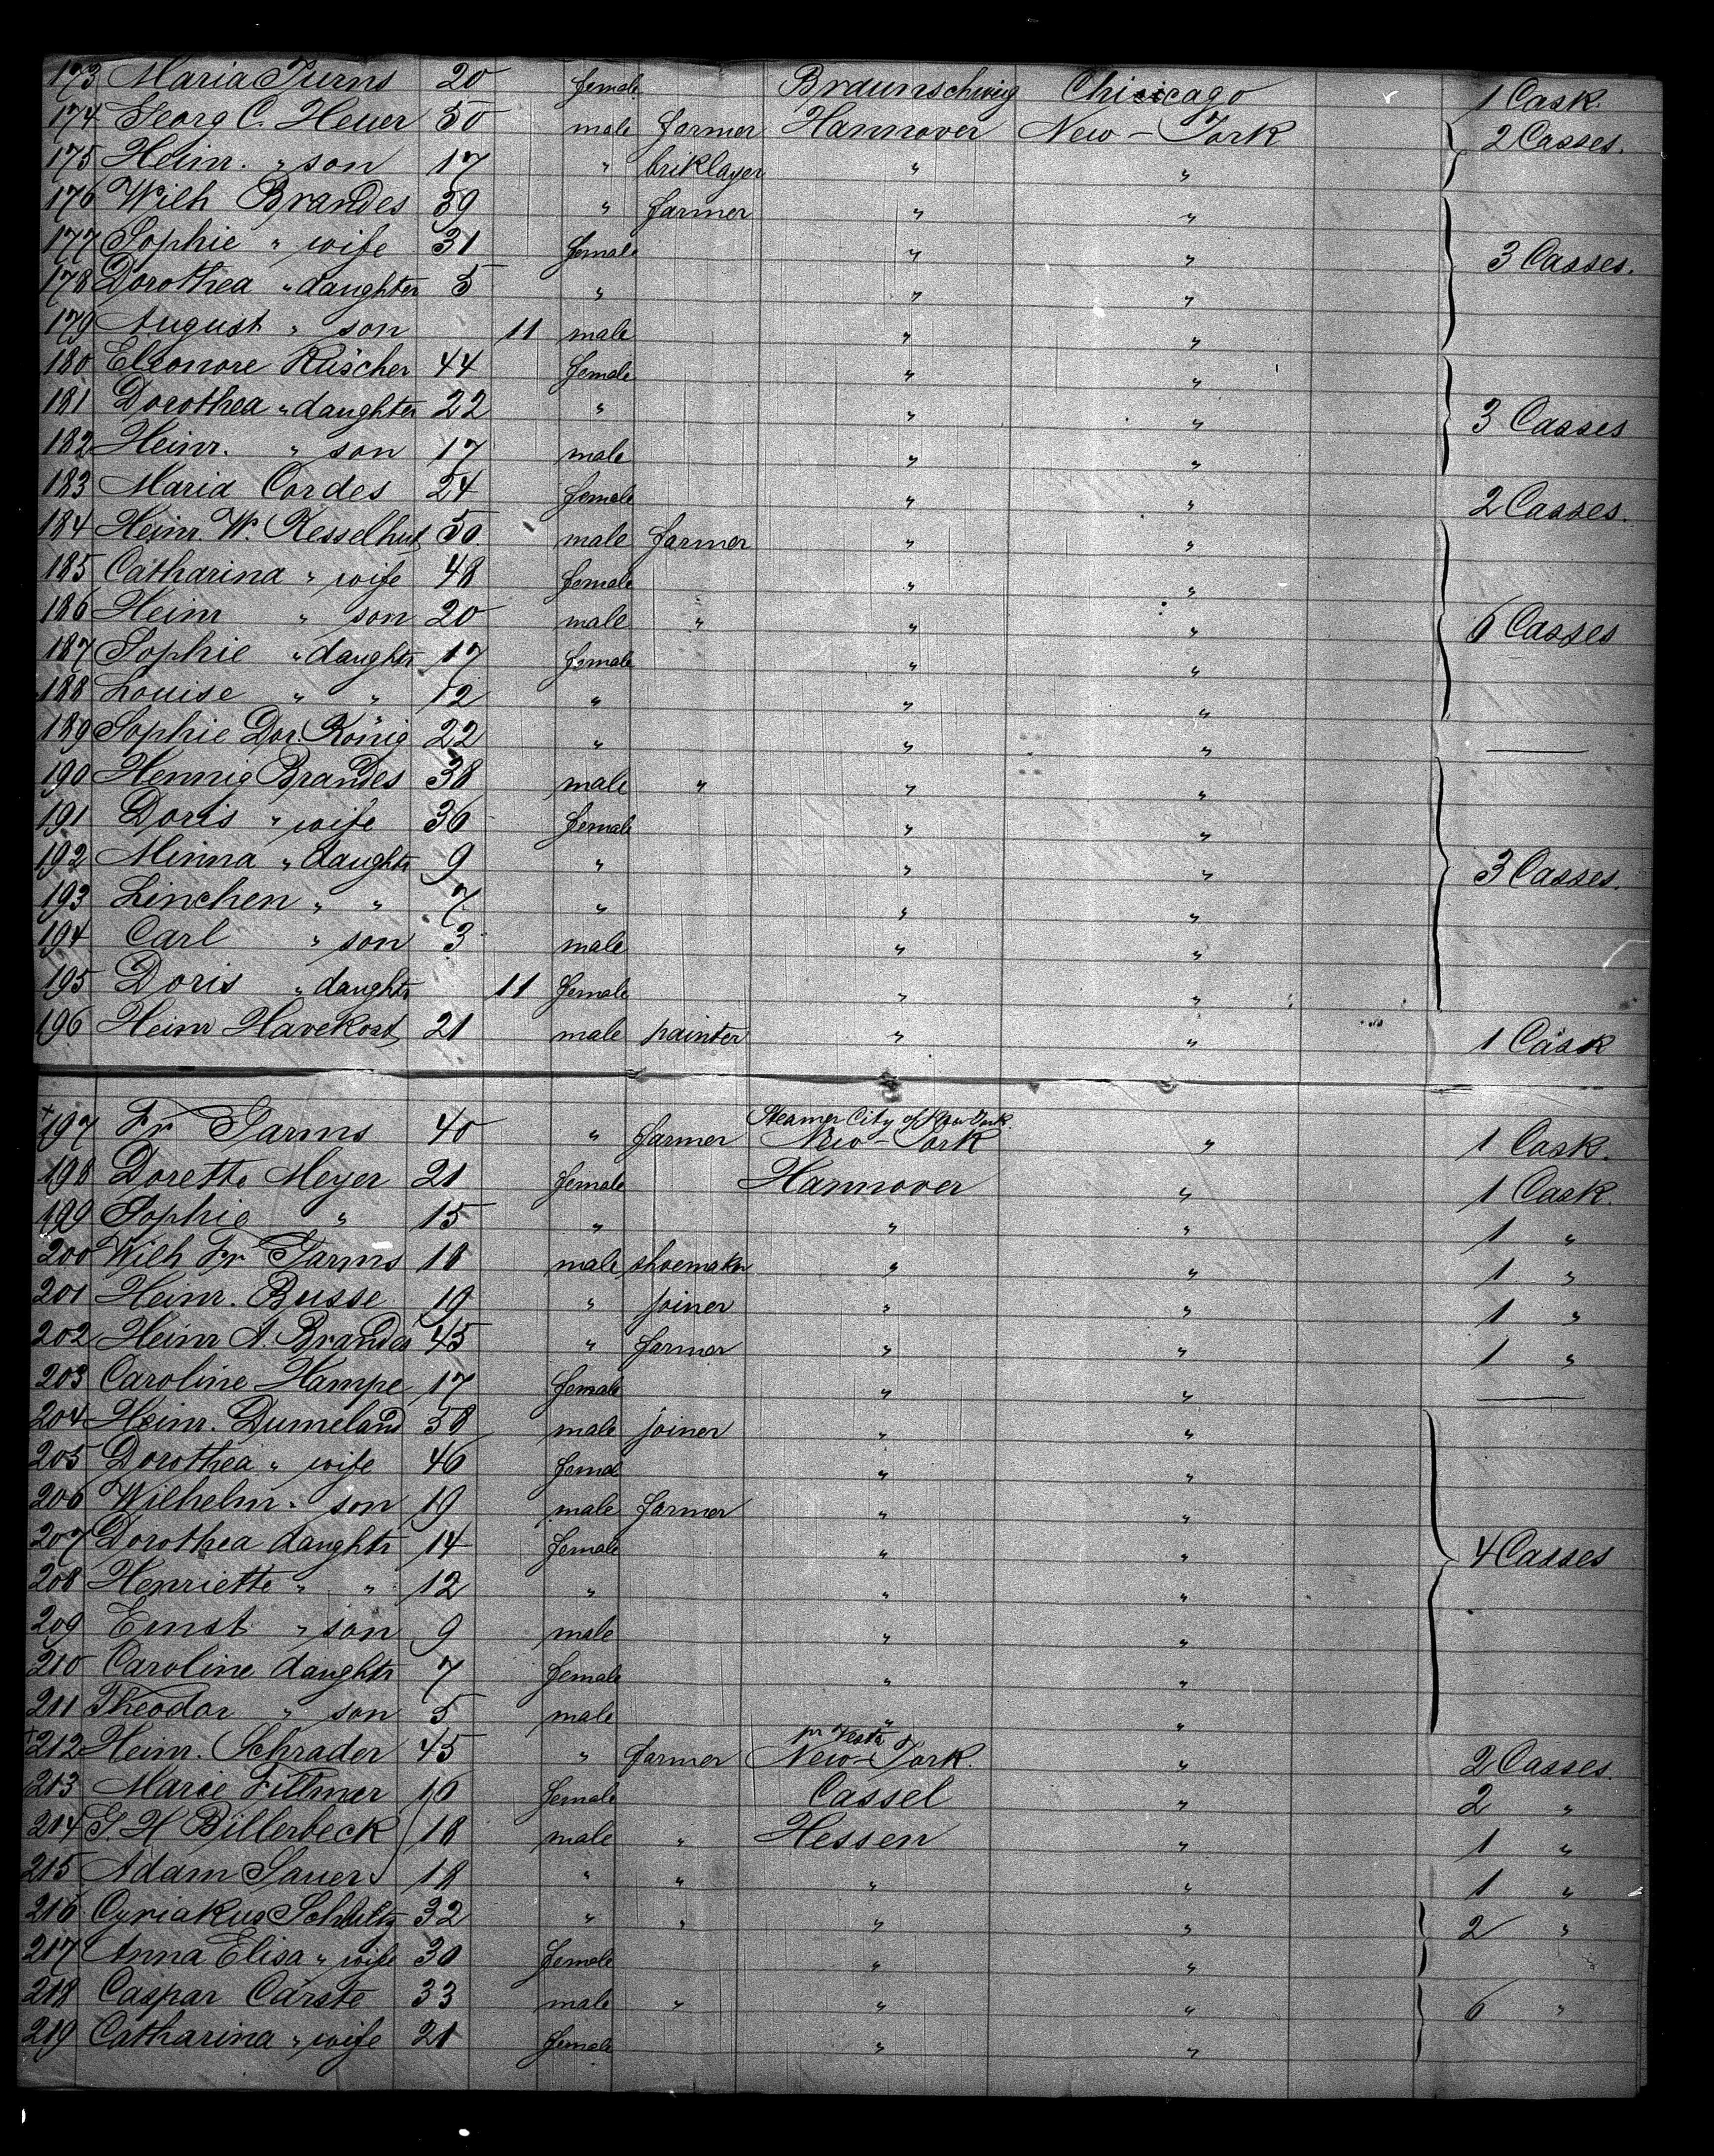 173 Maria Purns 20 female Braunschweig Chicicago 1 Cask.
174 Georg C. Heuer 50 male farmer Hannover New-York 2 Casses.
175 Heinr. " son 17 " briklayer " "
176 Wilh Brandes 39 " farmer " "
177 Sophie " wife 31 female " " 3 Casses.
178 Dorothea " daughter 5 " " "
179 August " son 11 male " "
180 Eleonore Rüscher 44 female " "
181 Dorothea " daughter 22 " " " 3 Casses
182 Heinr. " son 17 male " "
183 Maria Cordes 24 female " " 2 Casses.
184 Heinr. W. Kesselhut 50 male farmer " "
185 Catharina " wife 48 female " "
186 Heinr " son 20 male " " " 6 Casses
187 Sophie " daughtr 17 female " "
188 Louise " " 12 " " "
189 Sophie Dor. König 22 " " " —
190 Hennig Brandes 38 male " " "
191 Doris " wife 36 female " "
192 Minna " daughtr 9 " " " 3 Casses.
193 Linchen " " 7 " " "
194 Carl " son 3 male " "
195 Doris " daughtr 11 female " "
196 Heinr Havekost 21 male painter " " 1 Cask
Steamer City of New York.
+197 Fr Harms 40 " farmer New-York " 1 Cask.
198 Dorette Meyer 21 female Hannover " 1 Cask.
199 Sophie " 15 " " " 1 "
200 Wilh Fr Harms 18 male shoemaker " " 1 "
201 Heinr. Busse 19 " joiner " " 1 "
202 Heinr A. Brandes 45 " farmer " " 1 "
203 Caroline Hampe 17 female " " —
204 Heinr. Dumeland 58 male joiner " "
205 Dorothea " wife 46 femal " "
206 Wilhelm " son 19 male farmer " "
207 Dorothea daughtr 14 female " " 4 Casses
208 Henriette " " 12 " " "
209 Ernst " son 9 male " "
210 Caroline daughtr 7 female " "
211 Theodor " son 5 male " "
pr Vesta
+212 Heinr. Schrader 45 " farmer New-York. " 2 Casses.
213 Marie Fittmer 10 female Cassel " 2 "
214 G. H Billerbeck 18 male " Hessen " 1 "
215 Adam Sauer 18 " " " " 1 "
216 Cyriakus Schultz 32 " " " " 2 "
217 Anna Elisa " wife 30 female " "
218 Caspar Carste 33 male " " " 6 "
219 Catharina " wife 21 female " "